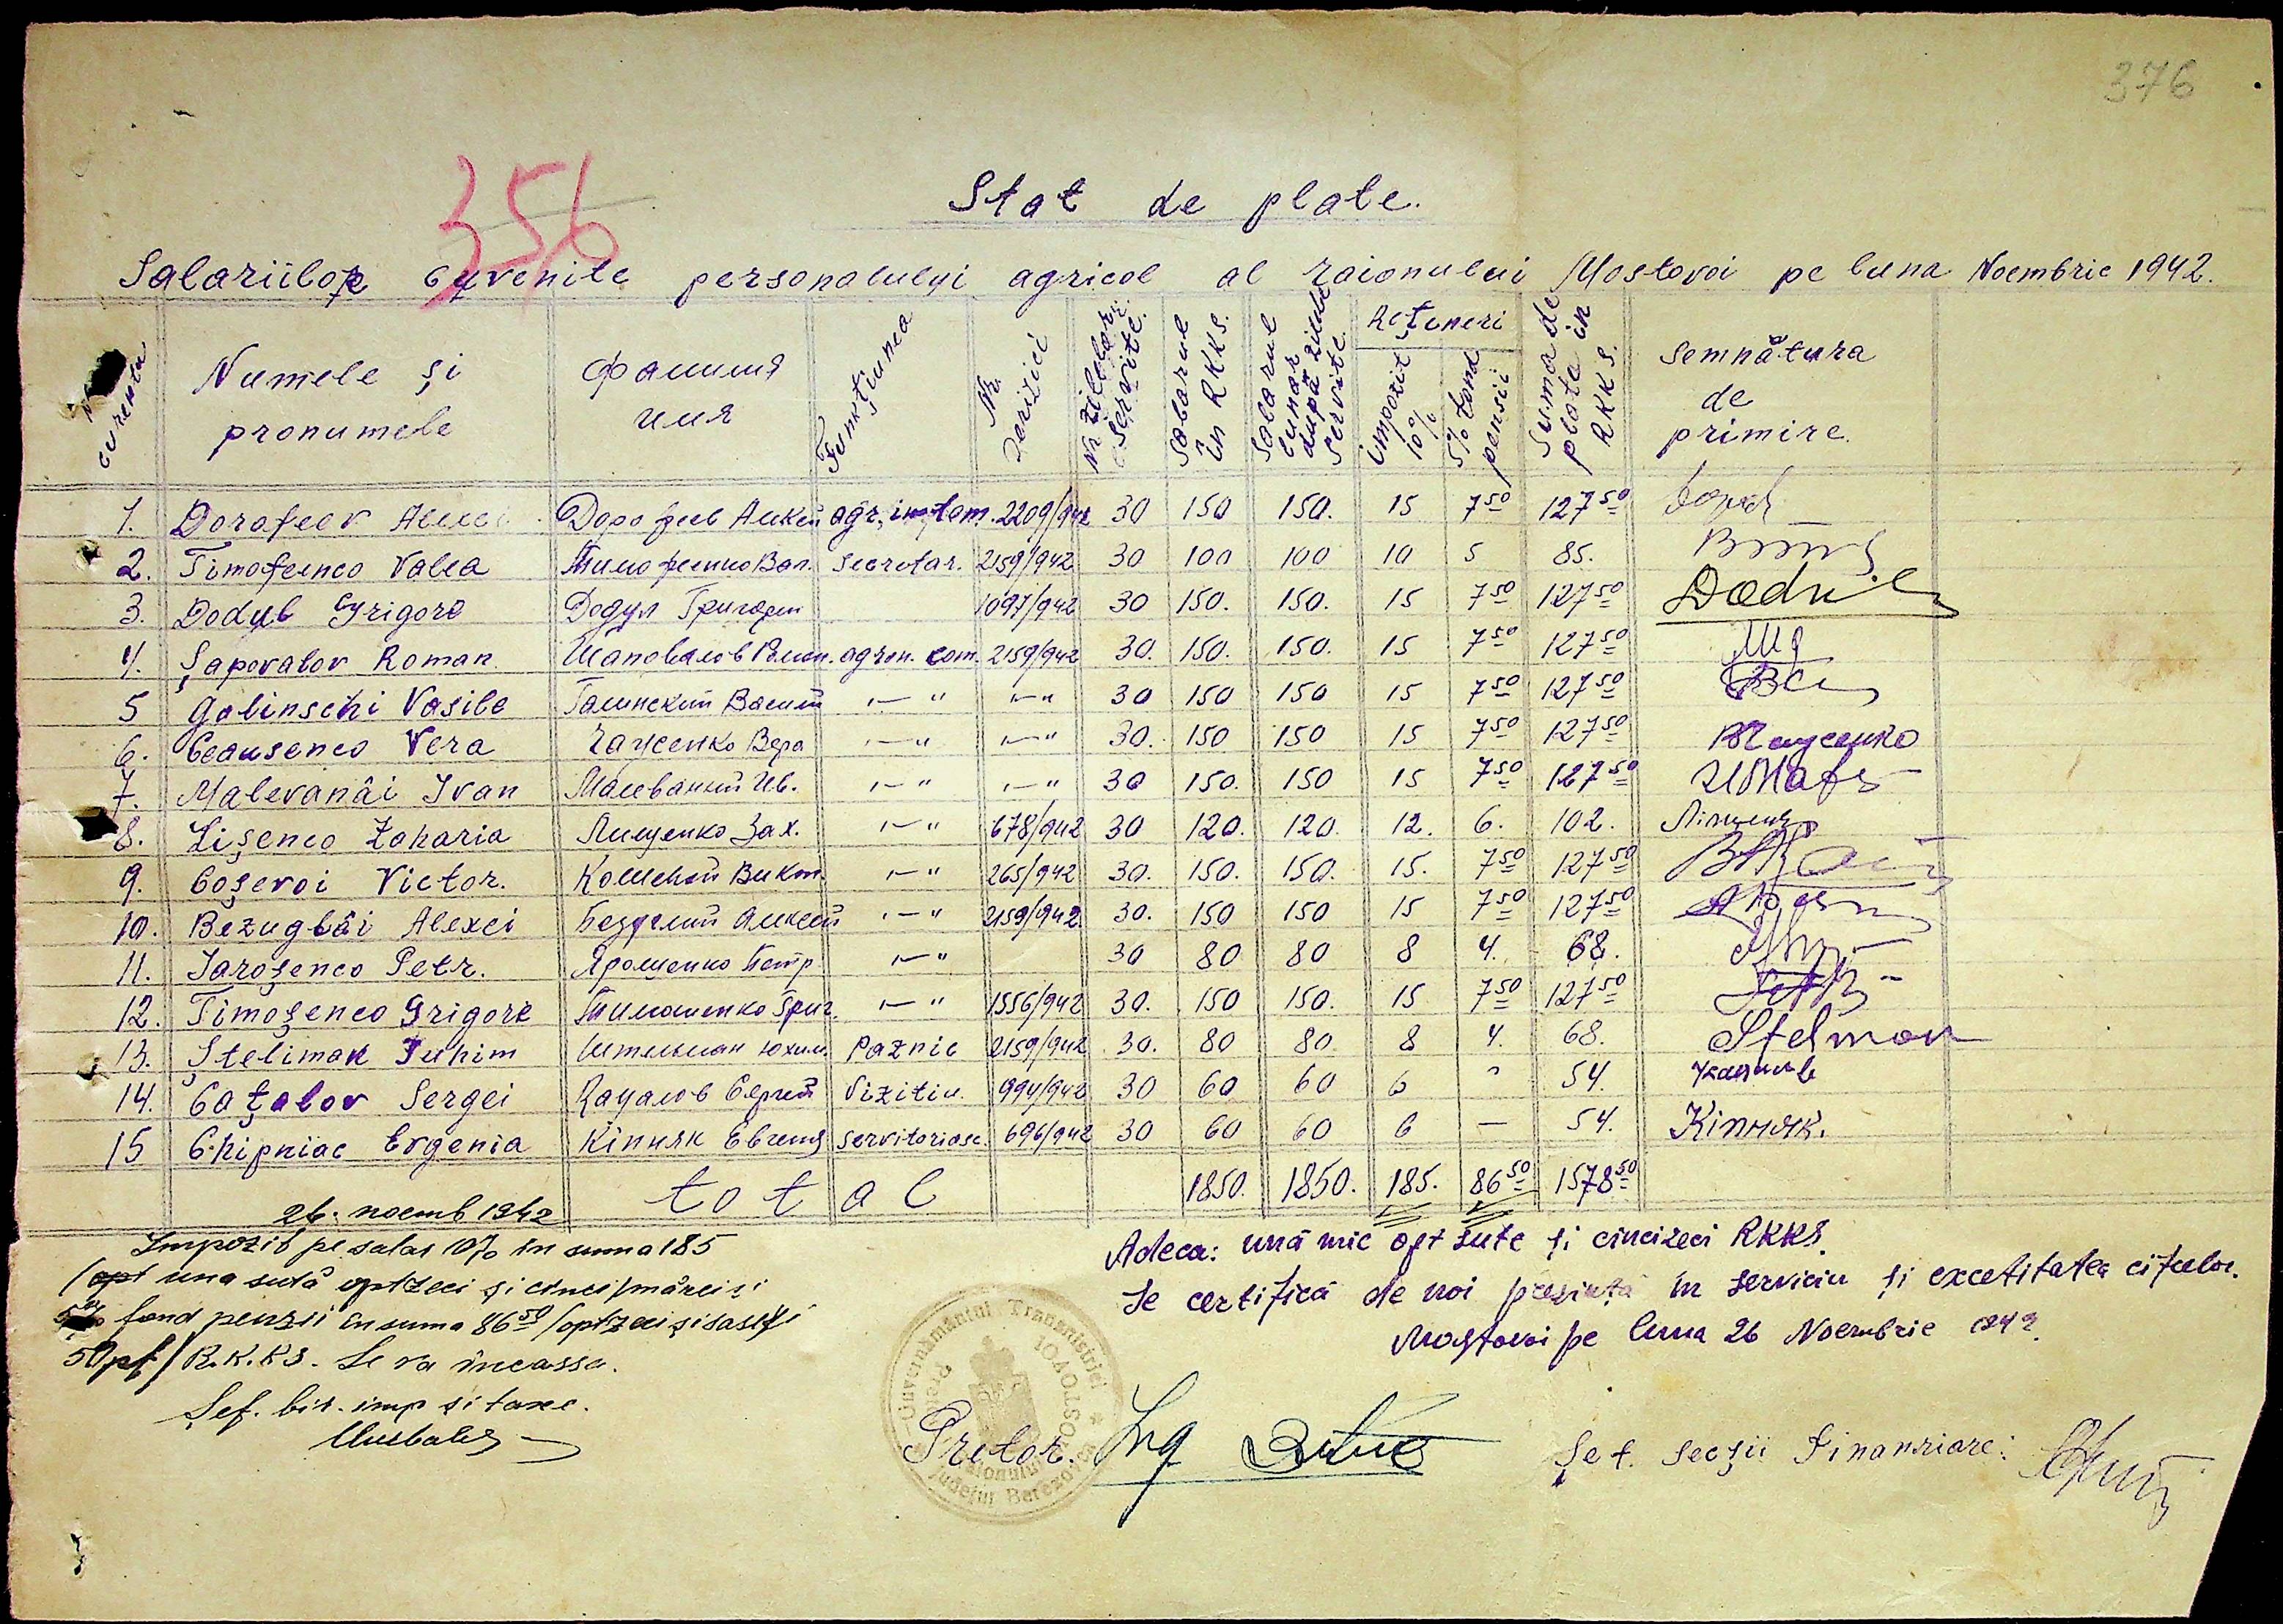 376
356
Stat de plate.
Salariilor cuvenite personalului agricol al raionului Mostovoi pe luna Noembrie 1942.
Nr curentu | Numele și pronumele | Фамилия имя | Funkțiunea | Nr. Deciziei | Nr zilelor servite. | Salarul în RKKS. | Salarul lunar după zilele servite | Rețineri | impozit 10% | 5% fond pensii | Suma de plate in RKKS. | Semnătura de primire.
1. Dorofeev Alexei Дорофеев Алксей agr. 2209/942 30 150 150. 15 7 50 127 50
2. Timofeenco Valea Тимофеенко Вал. Secretar. 2159/942 30 100 100 10 5 85.
3. Dodul Grigore Додул Григорий 1097/942 30 150. 150. 15 7 50 127 50
4. Șapovalov Roman. Шаповалов Роман. agron. com. 2159/942 30. 150. 150. 15 7 50 127 50
5 Galinschi Vasile Галинский Васил ı—" ı—" 30 150 150 15 7 50 127 50
6. Ceausenco Vera Чаусенко Вера ı—" ı—" 30. 150 150 15 7 50 127 50 Чаусенко
7. Malevanâi Ivan Малеваний Ив. ı—" ı—" 30 150. 150 15 7 50 127 50
8. Lișenco Zaharia Лищенко Зах. ı—" 678/942 30 120. 120. 12. 6. 102.
9. Coșevoi Victor. Кошевой Викт. ı—" 265/942 30. 150. 150. 15. 7 50 127 50
10. Bezuglâi Alexei Безуглий Алексей ı—" 2159/942 30. 150 150 15 7 50 127 50
11. Iaroșenco Petr. Ярошенко Петр ı—" 30 80 80 8 4. 68.
12. Timoșenco Grigore Тимошенко Григ. ı—" 1556/942 30. 150 150. 15 7 50 127 50
13. Ștelimak Iuhim Штельмах Юхим Paznic 2159/942 30. 80 80 8 4. 68. Stelmax
14. Cațalov Sergei Кацалов Сергей Vizitiu. 994/942 30 60 60 6 - 54.
15 Chipniac Evgenia Кіпняк Евгения servitoriasc. 696/942 30 60 60 6 — 54. Кіпняк.
total 1850. 1850. 185. 86 50 1578 50
26. noemb 1942
Impozit pe salar 10% în suma 185
(opt una sută optzeci și cinci) mărci și
5% fond penzii în suma 86 50 (optzeci și sase și
50 pf) R.K.KS. Se va incassa.
Șef. bir. imp și taxe.
Adeca: ună mie opt sute și cincizeci RKKS.
Se certifică de noi prezința în serviciu și exactitatea cifrelor.
Mostovoi pe luna 26 Noembrie 1942.
Guvernământul Transnistriei
Pretura Raionului MOSTOVOI
Județul Berezovca
Pretor. Ing
Șef. secții Finanziare: